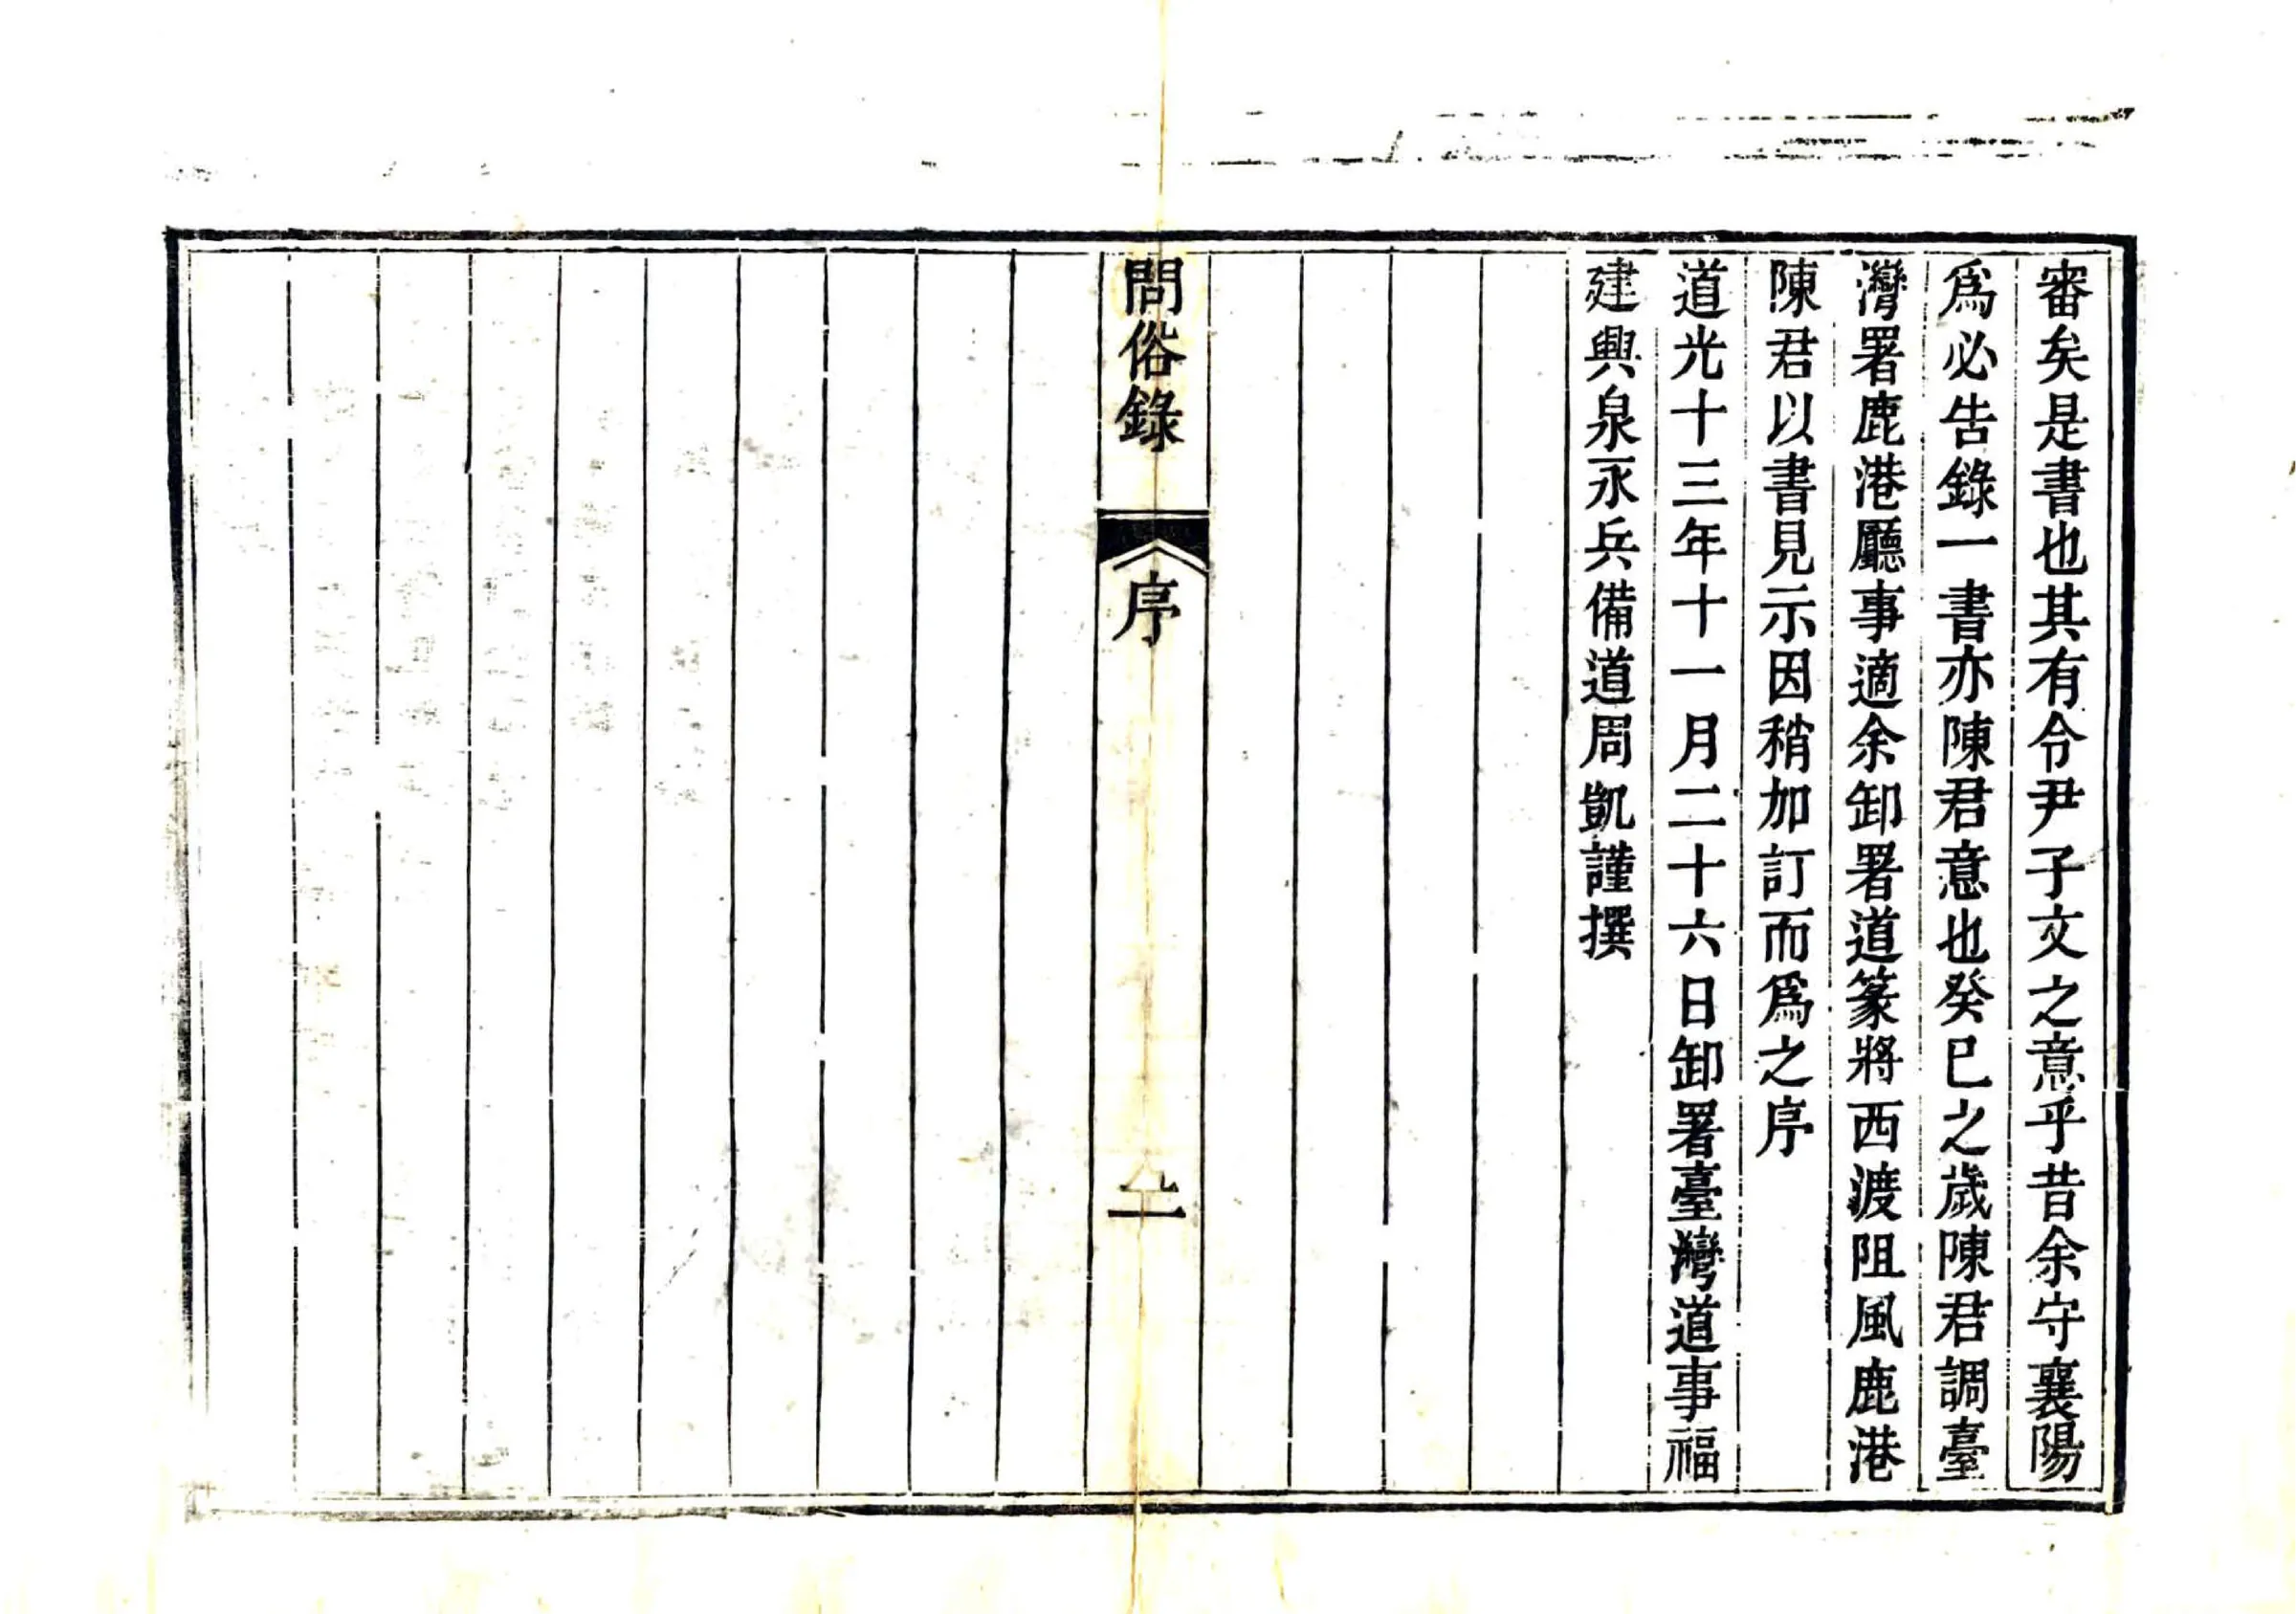 審矣是書也其有令尹子文之意乎昔余守襄陽
爲必告錄一書亦陳君意也癸巳之歲陳君調臺
灣署鹿港廳事適余卸署道篆將西渡阻風鹿港
陳君以書見示因稍加訂而爲之序
道光十三年十一月二十六日卸署臺灣道事福
建興泉永兵備道周凱謹撰
問俗錄
序